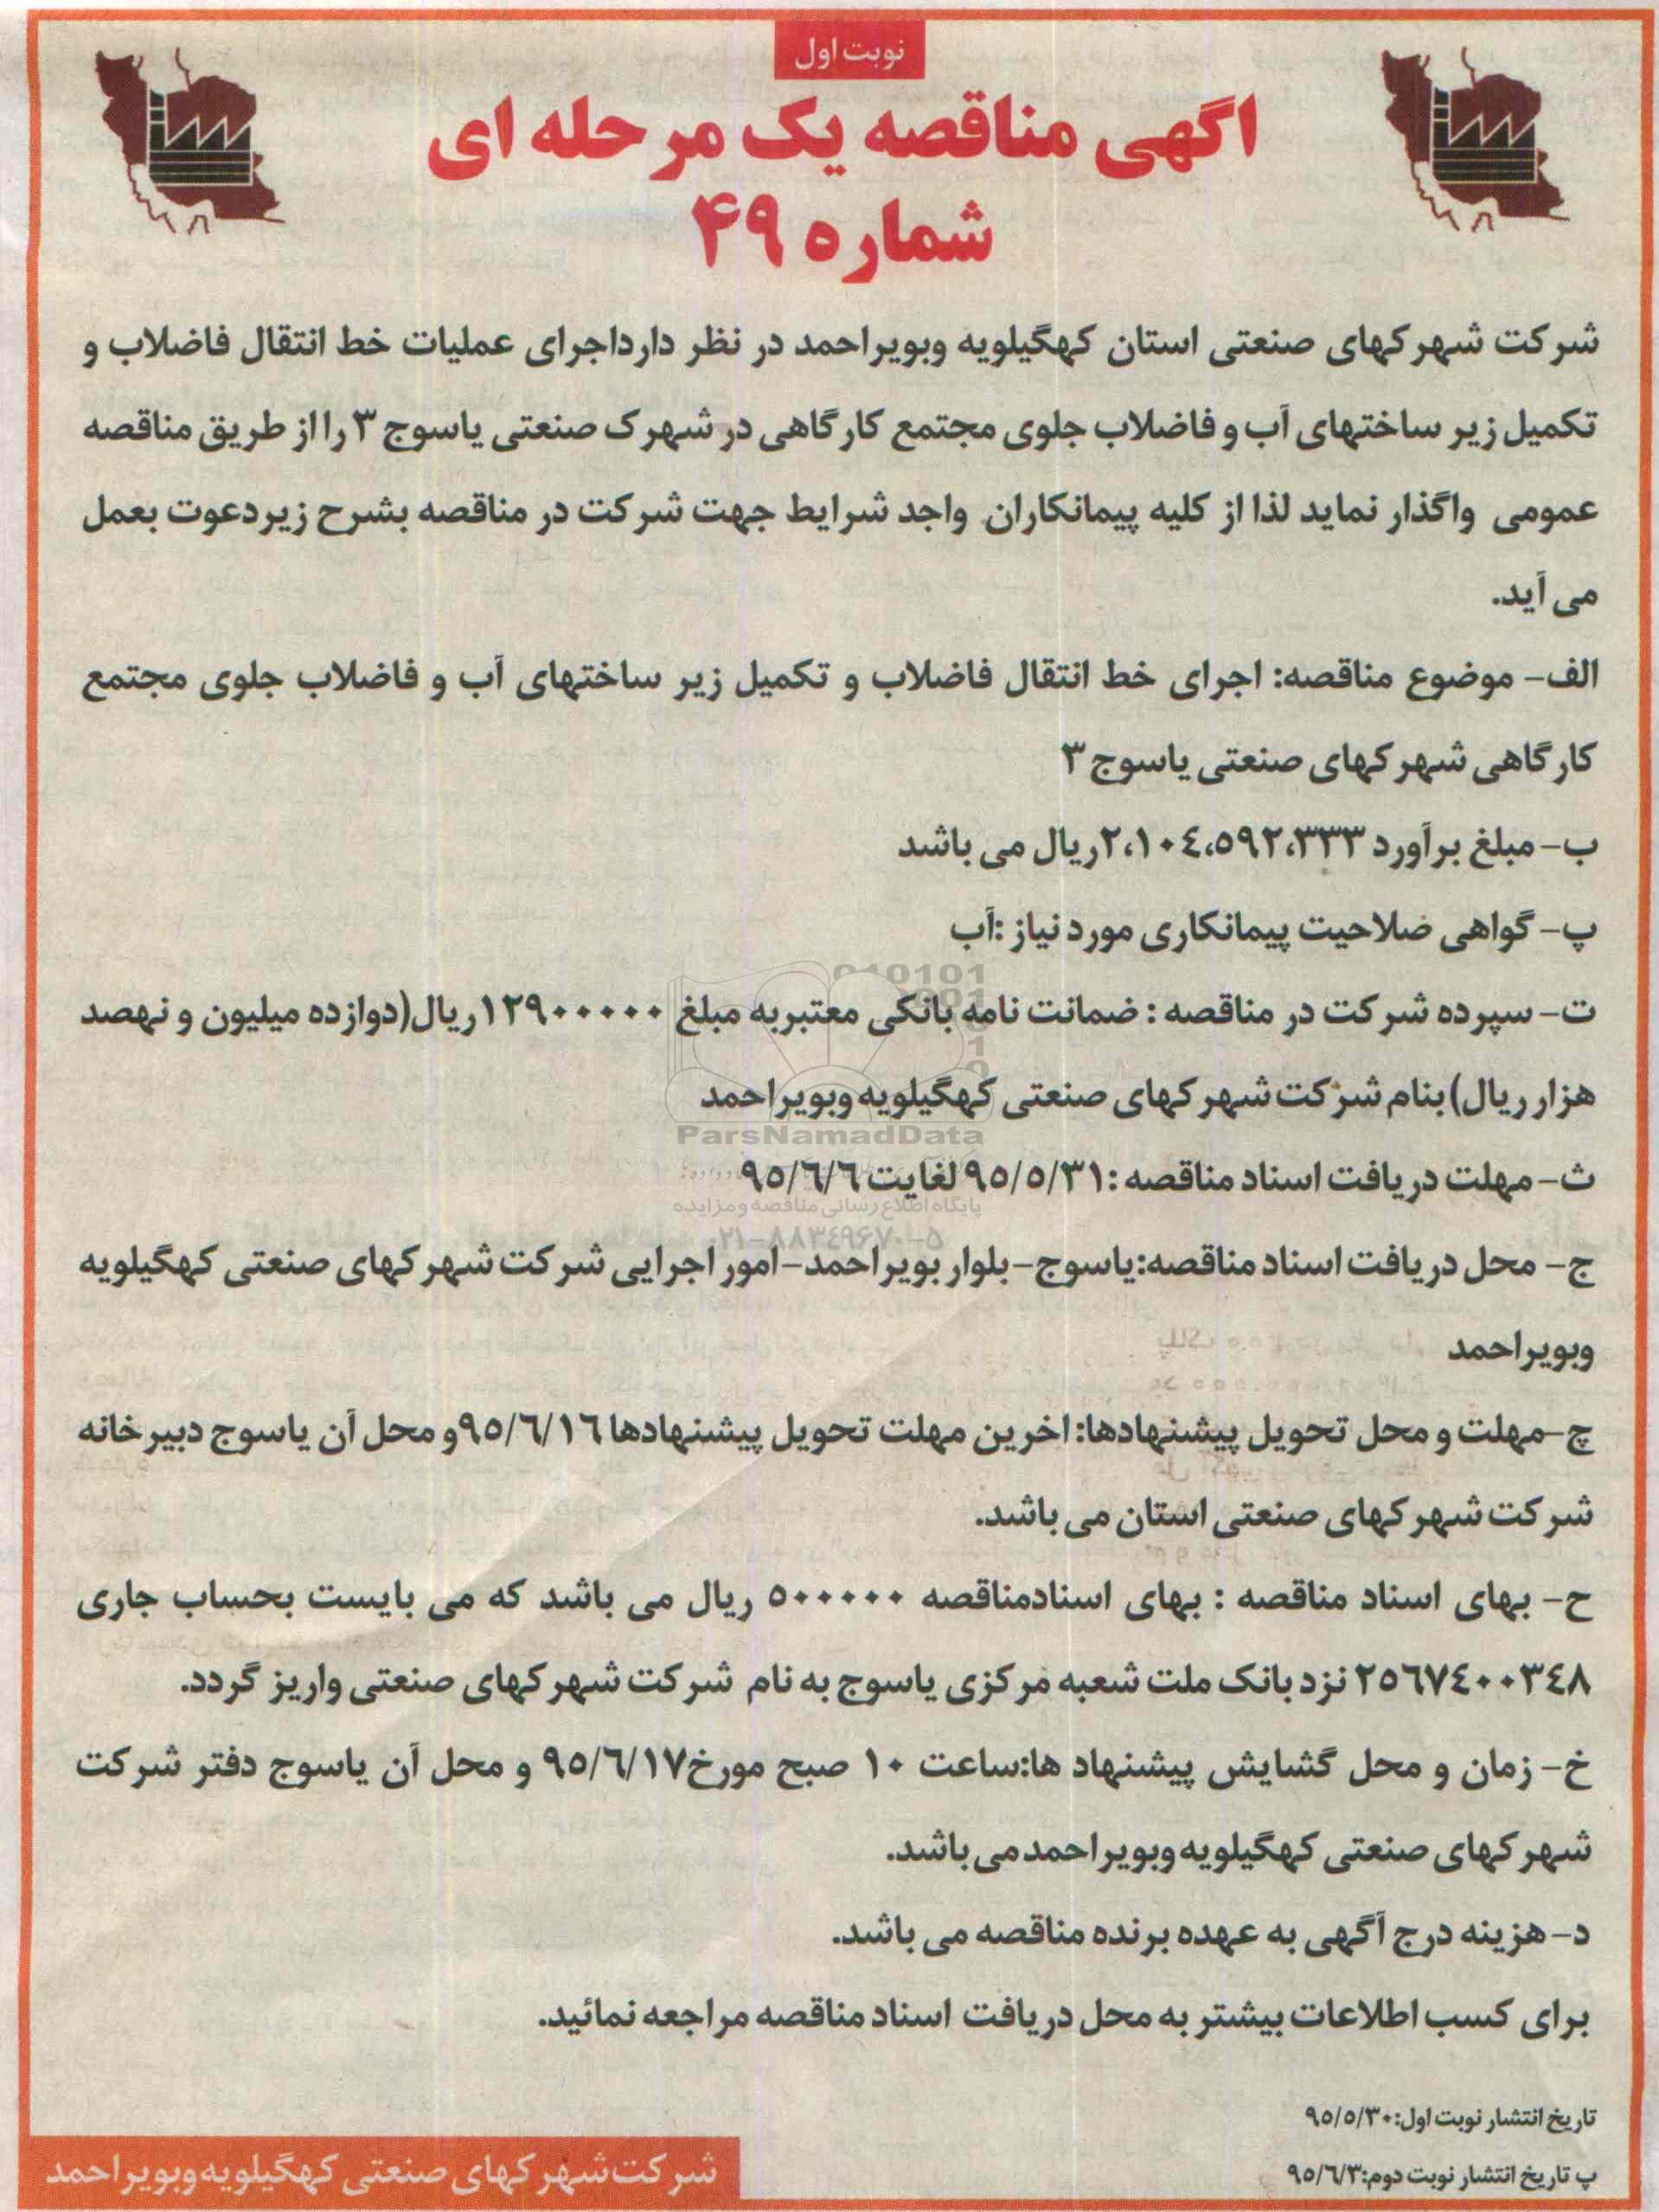 نوبت اول
اگهی مناقصه یک مرحله ای
شماره ۴۹
شرکت شهرکهای صنعتی استان کهگیلویه وبویراحمد در نظر دارداجرای عملیات خط انتقال فاضلاب و
تکمیل زیر ساختهای آب و فاضلاب جلوی مجتمع کارگاهی در شهرک صنعتی یاسوج ۳ را از طریق مناقصه
عمومی واگذار نماید لذا از کلیه پیمانکاران واجد شرایط جهت شرکت در مناقصه بشرح زیردعوت بعمل
می آید.
الف- موضوع مناقصه: اجرای خط انتقال فاضلاب و تکمیل زیر ساختهای آب و فاضلاب جلوی مجتمع
کارگاهی شهرکهای صنعتی یاسوج ۳
ب- مبلغ برآورد ۲،۱۰٤،۵۹۲،۳۳۳ریال می باشد
پ- گواهی ضلاحیت پیمانکاری مورد نیاز :آب
ت- سپرده شرکت در مناقصه : ضمانت نامه بانکی معتبربه مبلغ ۱۲۹۰۰۰۰۰ریال(دوازده میلیون و نهصد
هزار ریال)بنام شرکت شهرکهای صنعتی کهگیلویه وبویراحمد
ParsNamadData
ث- مهلت دریافت اسناد مناقصه :۹۵/۵/۳۱ لغایت ۹۵/٦/٦
پایگاه اطلاع رسانی مناقصه و مزایده
۰۲۱-۸۸۳٤۹۶۷۰-۵
ج- محل دریافت اسناد مناقصه:یاسوج-بلوار بویراحمد-امور اجرایی شرکت شهرکهای صنعتی کهگیلویه
وبویراحمد
چ-مهلت و محل تحویل پیشنهادها: اخرین مهلت تحویل پیشنهادها ۹۵/٦/۱٦و محل آن یاسوج دبیرخانه
شرکت شهرکهای صنعتی استان می باشد.
ح- بهای اسناد مناقصه : بهای اسنادمناقصه ۵۰۰۰۰۰ ریال می باشد که می بایست بحساب جاری
۲۵٦۷٤۰۰۳٤۸ نزد بانک ملت شعبه مرکزی یاسوج به نام شرکت شهرکهای صنعتی واریز گردد.
خ- زمان و محل گشایش پیشنهاد ها:ساعت ۱۰ صبح مورخ۹۵/٦/۱۷ و محل آن یاسوج دفتر شرکت
شهرکهای صنعتی کهگیلویه وبویراحمدمی باشد.
د- هزینه درج آگهی به عهده برنده مناقصه می باشد.
برای کسب اطلاعات بیشتر به محل دریافت اسناد مناقصه مراجعه نمائید.
تاریخ انتشار نوبت اول:۹۵/۵/۳۰
پ تاریخ انتشار نوبت دوم:۹۵/٦/۳
شرکت شهرکهای صنعتی کهگیلویه وبویراحمد